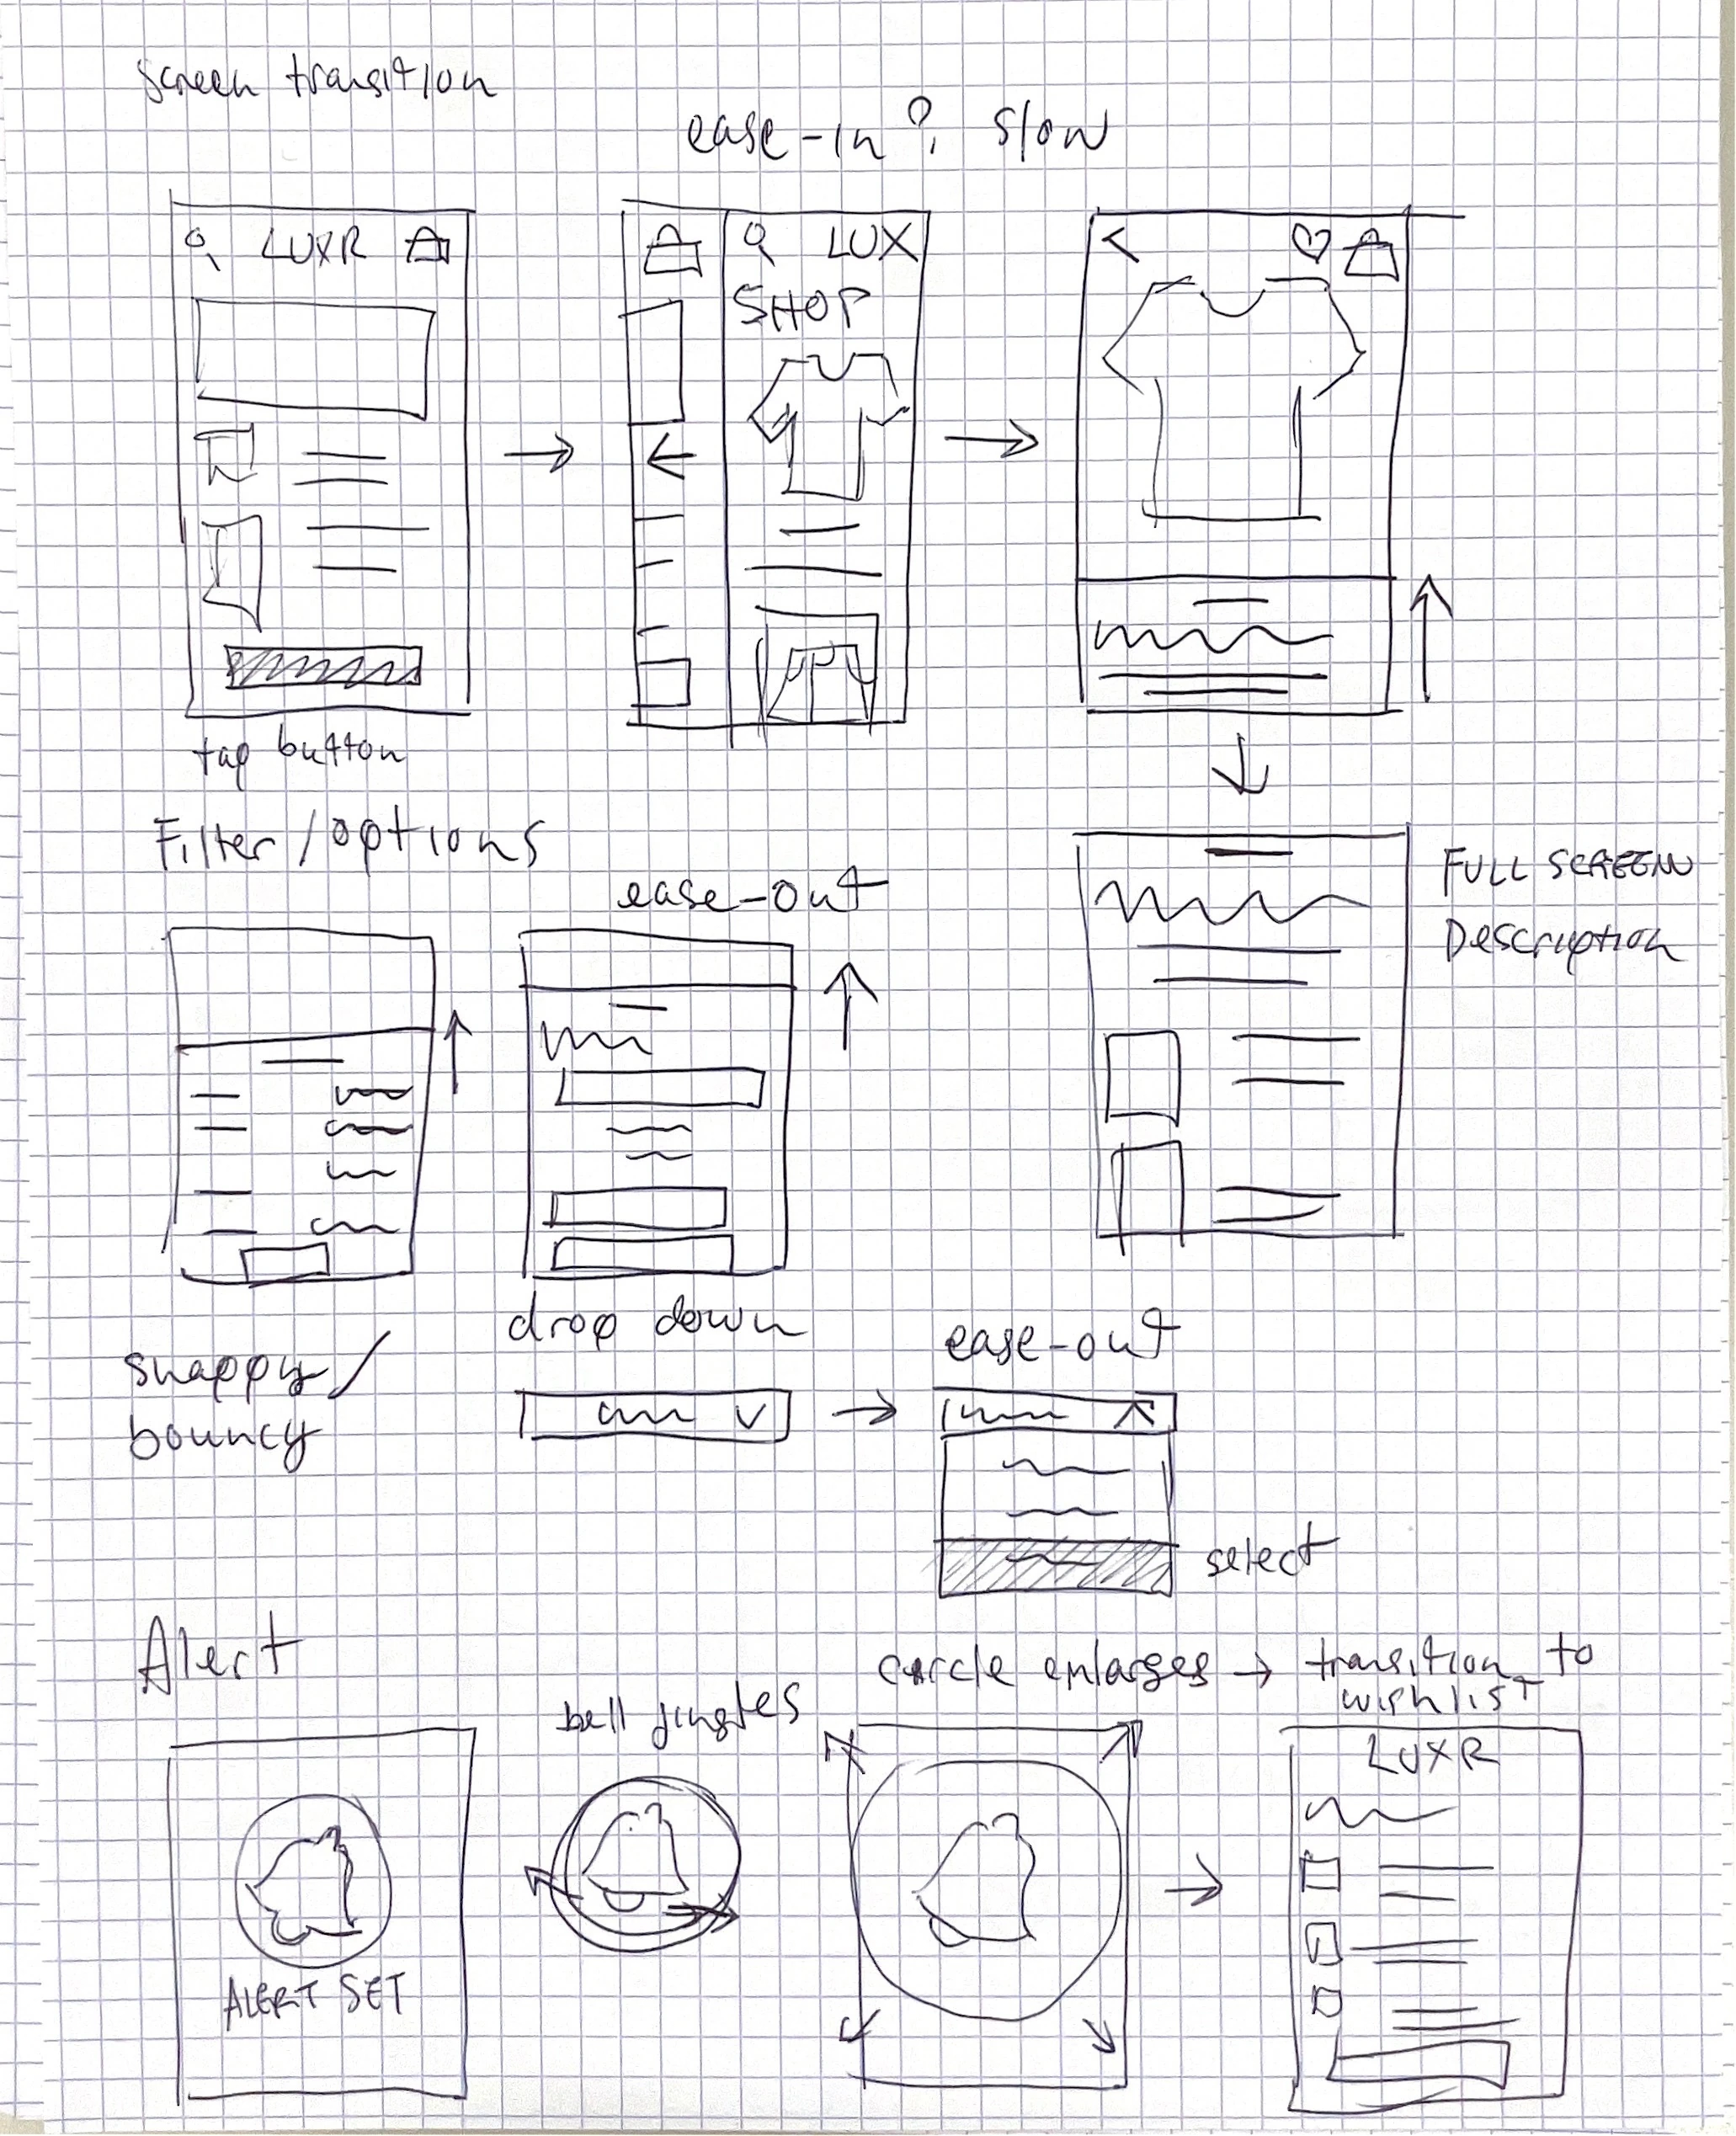 screen transition
ease-in? slow
LUXR
LUX
SHOP
tap button
Filter/options
ease-out
FULL SCREEN
Description
snappy/
bouncy
drop down
ease-out
select
Alert
bell jingles
circle enlarges → transition to
wishlist
ALERT SET
LUXR